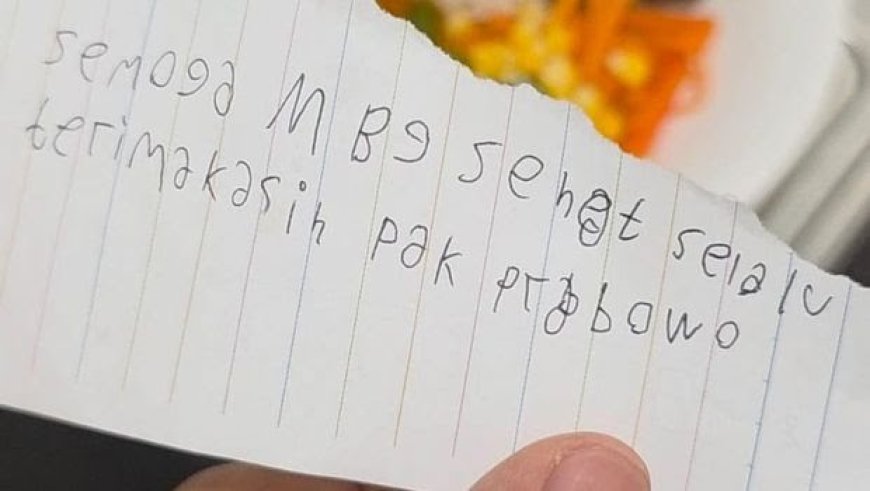 semoga MBg sehat selalu
terimakasih pak prabowo